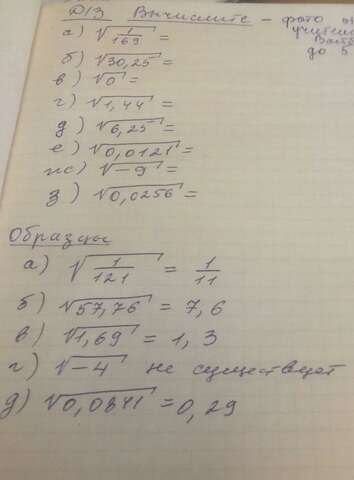 Д/З Вычислите – фото
а) √1/169 =
б) √30,25 =
в) √0 =
г) √1,44 =
д) √6,25 =
е) √0,0121 =
ж) √-9 =
з) √0,0256 =
Образцы
а) √1/121 = 1/11
б) √57,76 = 7,6
в) √1,69 = 1,3
г) √-4 не существует
д) √0,0841 = 0,29